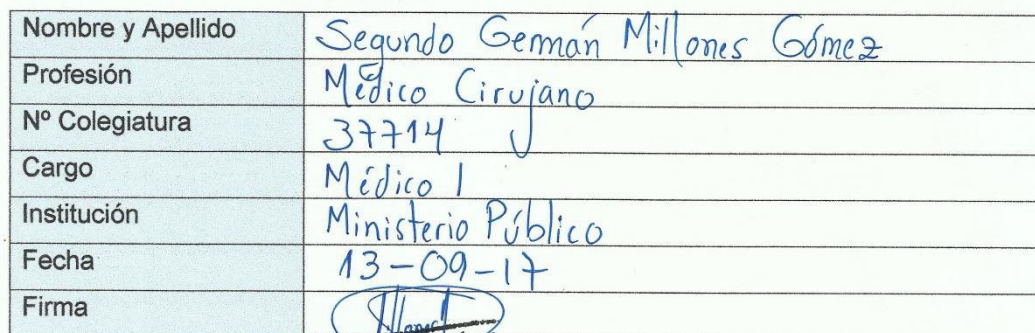 Nombre y Apellido Segundo Germán Millones Gómez
Profesión Médico Cirujano
Nº Colegiatura 37714
Cargo Médico 1
Institución Ministerio Público
Fecha 13-09-17
Firma